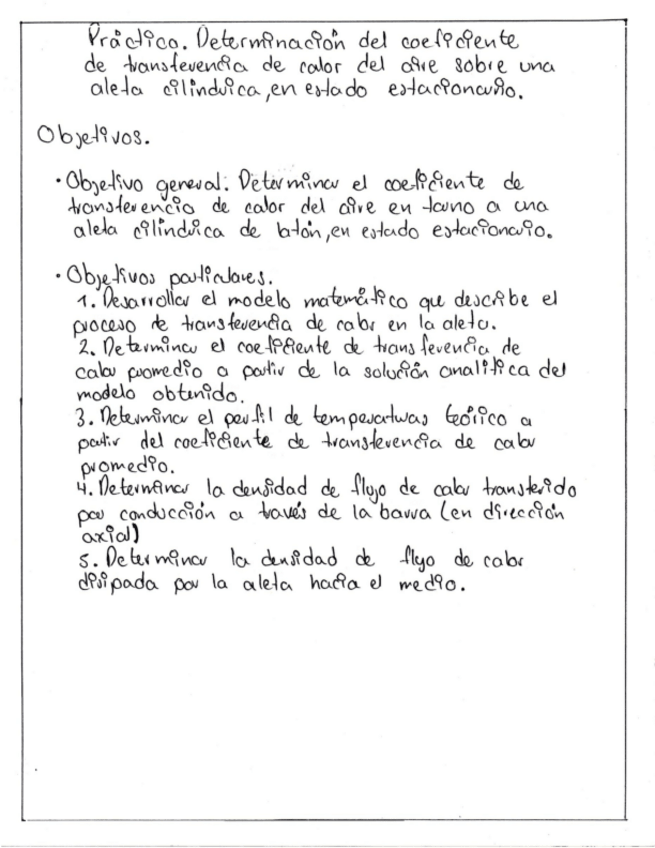 Práctica. Determinación del coeficiente
de transferencia de calor del aire sobre una
aleta cilindrica, en estado estacionario.
Objetivos.
· Objetivo general: Determinar el coeficiente de
transferencia de calor del aire en torno a una
aleta cilíndrica de latón, en estado estacionario.
· Objetivos particulares.
1. Desarrollar el modelo matemático que describe el
proceso de transferencia de calor en la aleta.
2. Determinar el coeficiente de transferencia de
calor promedio a partir de la solución analítica del
modelo obtenido.
3. Determinar el perfil de temperaturas teórico a
partir del coeficiente de transferencia de calor
promedio.
4. Determinar la densidad de flujo de calor transferido
por conducción a través de la barra (en dirección
axial)
5. Determinar la densidad de flujo de calor
disipada por la aleta hacia el medio.